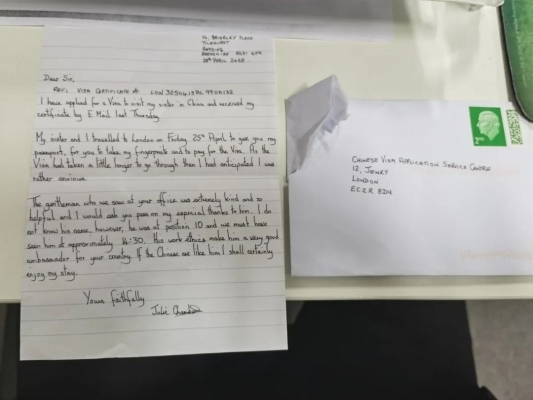 Dear Sir,
I have applied for a Visa to visit my sister in China and received my
certificate by E Mail last Thursday.
My sister and I travelled to London on Friday 25th April to give you my
passport, for you to take my fingerprints and to pay for the Visa. As the
Visa had taken a little longer to go through then I had anticipated I was
rather anxious.
The gentleman who we saw at your office was extremely kind and so
helpful and I would ask you pass my especial thanks to him. I do
not know his name, however, he was at position 10 and we must have
seen him at approximately 14:30. His work ethics make him a very good
ambassador for your country. If the Chinese are like him I shall certainly
enjoy my stay.
Yours faithfully
Julie
CHINESE VISA APPLICATION SERVICE CENTRE
12, JEWRY
LONDON
EC2R 8DU